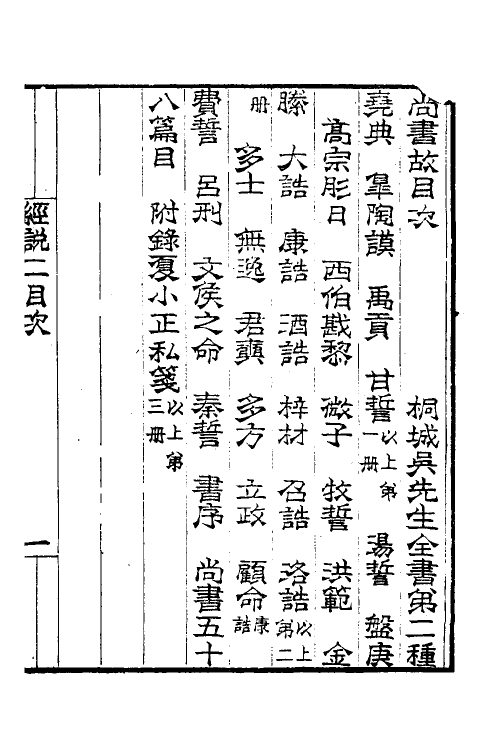 尚書故目次　桐城吳先生全書第二種
堯典　皐陶謨　禹貢　甘誓以上第一册　湯誓　盤庚
高宗肜日　西伯戡黎　微子　牧誓　洪範　金
縢　大誥　康誥　酒誥　梓材　召誥　洛誥以上第二
册　多士　無逸　君奭　多方　立政　顧命康誥
費誓　呂刑　文侯之命　秦誓　書序　尚書五十
八篇目　附錄夏小正私箋以上第三册
經說二目次　一